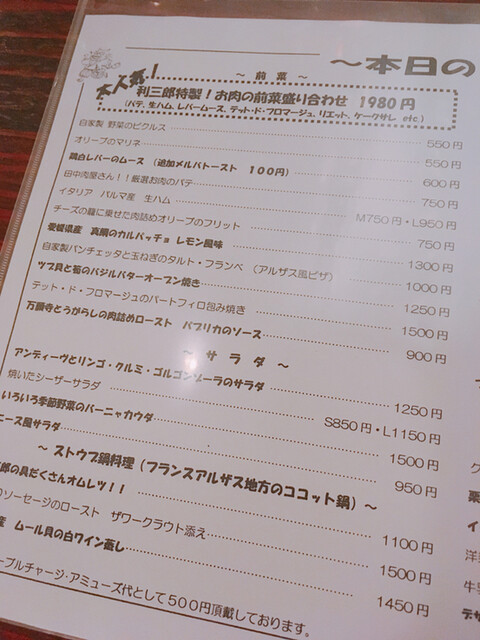 ～本日の
～ 前菜 ～
大人気！
利三郎特製！お肉の前菜盛り合わせ 1980円
（パテ、生ハム、レバームース、テット・ド・フロマージュ、リエット、ケークサレ etc）
自家製 野菜のピクルス 550円
オリーブのマリネ 550円
鶏白レバーのムース （追加メルバトースト 100円） 600円
田中肉屋さん！！厳選お肉のパテ 750円
イタリア パルマ産 生ハム M750円・L950円
チーズの籠に乗せた肉詰めオリーブのフリット 750円
愛媛県産 真鯛のカルパッチョ レモン風味 1300円
自家製パンチェッタと玉ねぎのタルト・フランベ （アルザス風ピザ） 1000円
ツブ貝と筍のバジルバターオーブン焼き 1250円
テット・ド・フロマージュのパートフィロ包み焼き 1500円
万願寺とうがらしの肉詰めロースト パプリカのソース 900円
～ サラダ ～
アンディーヴとリンゴ・クルミ・ゴルゴンゾーラのサラダ 1250円
焼いたシーザーサラダ S850円・L1150円
いろいろ季節野菜のバーニャカウダ 1500円
ース風サラダ 950円
～ ストウブ鍋料理（フランスアルザス地方のココット鍋）～
郎の具だくさんオムレツ！！ 1100円
ソーセージのロースト ザワークラウト添え 1500円
産 ムール貝の白ワイン蒸し 1450円
ーブルチャージ・アミューズ代として500円頂戴しております。